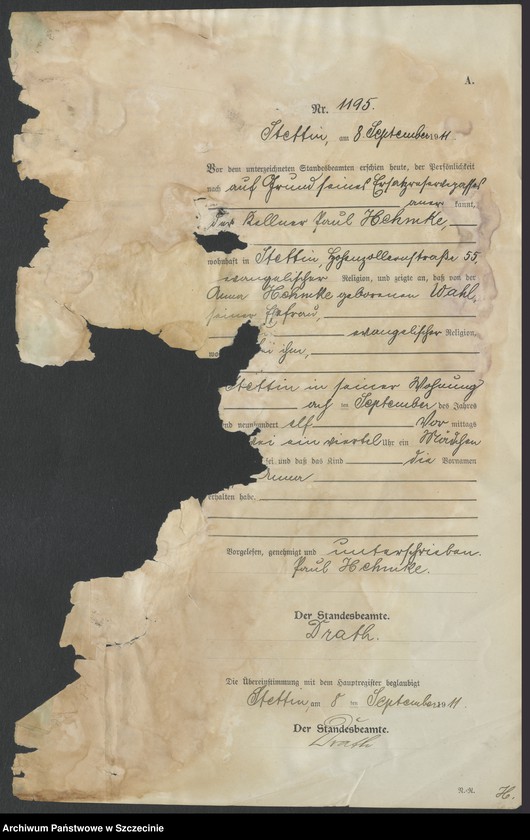 A.
Nr. 1195.
Stettin, am 8 September 1911.
Vor dem unterzeichneten Standesbeamten erschien heute, der Persönlichkeit
nach auf Grund seines Ersatzreservepasses
aner kannt,
der Kellner Paul Hehmke,
wohnhaft in Stettin, Hohenzollernstraße 55
evangelischer Religion, und zeigte an, daß von der
Anna Hehmke geborenen Wahl,
seiner Ehefrau,
evangelischer Religion,
bei ihm,
Stettin in seiner Wohnung
am September des Jahres
neunhundert elf Vor mittags
ein viertel Uhr ein Mädchen
sei und daß das Kind die Vornamen
erhalten habe.
Vorgelesen, genehmigt und unterschrieben.
Paul Hehmke.
Der Standesbeamte.
Drath.
Die Übereinstimmung mit dem Hauptregister beglaubigt
Stettin, am 8 ten September 1911.
Der Standesbeamte.
Drath
H.
Archiwum Państwowe w Szczecinie